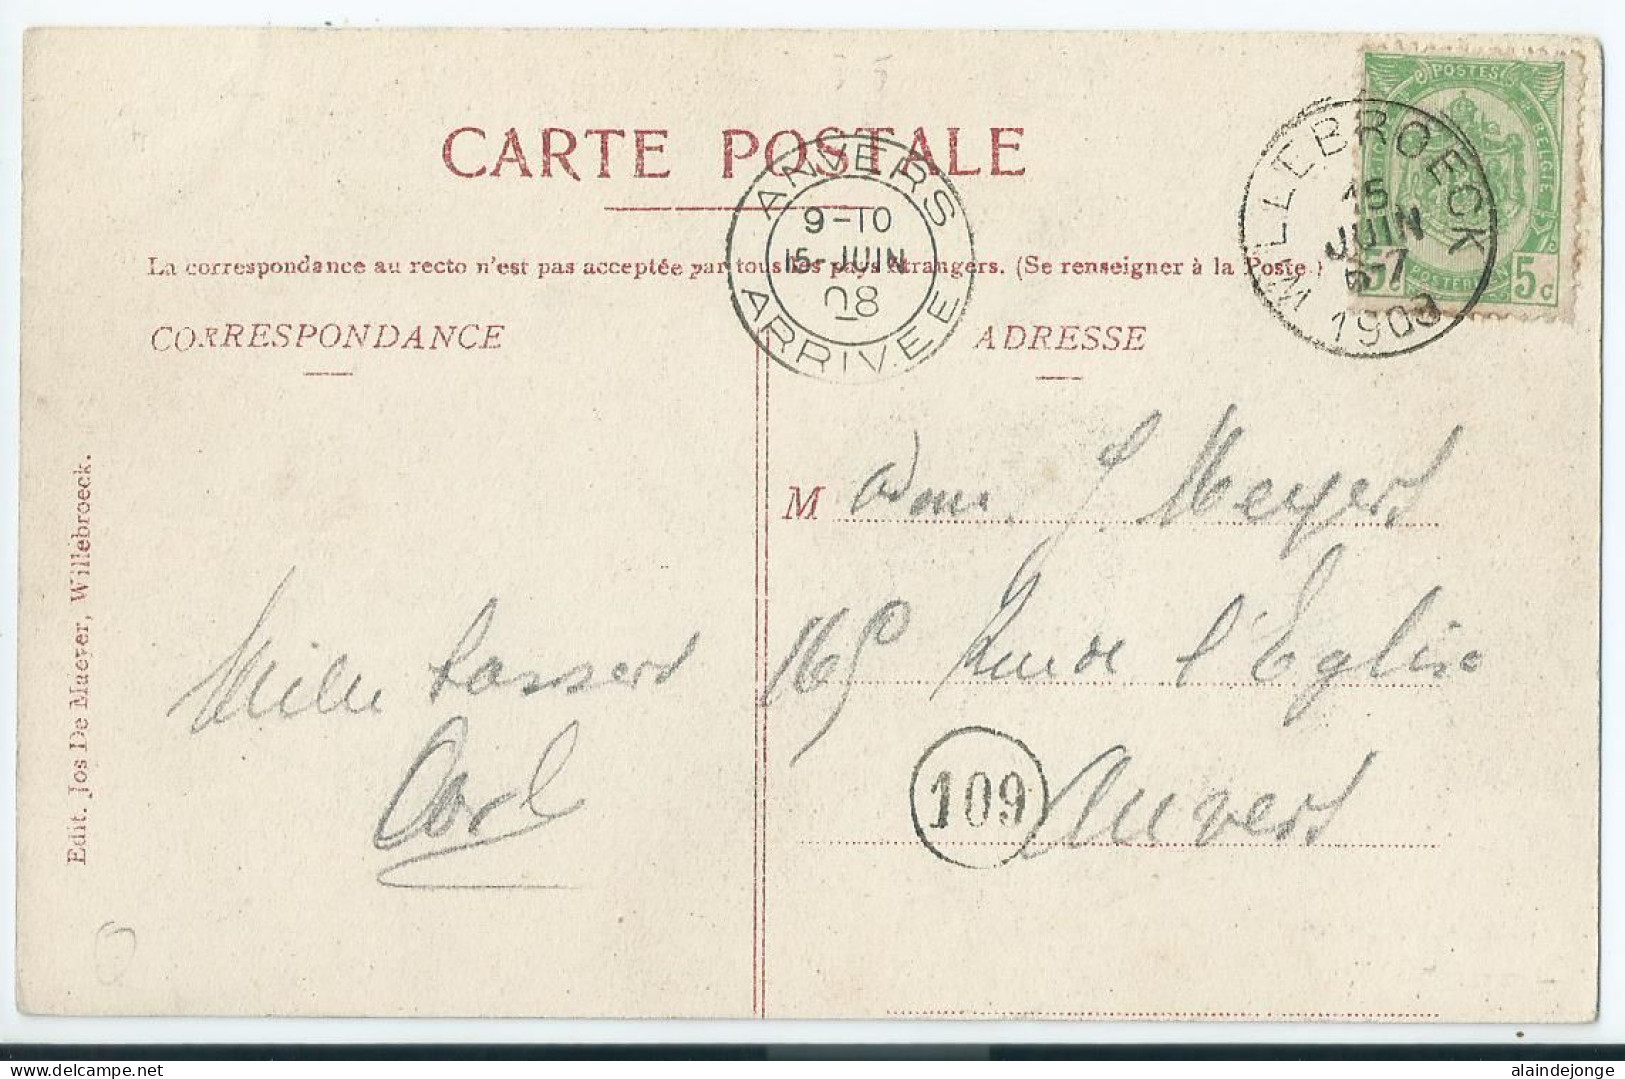 POSTES
BELGIQUE BELGIE
POSTERIJEN
5 5c
CARTE POSTALE
ANVERS
9-10
15-JUIN
08
ARRIVEE
WILLEBROECK
15
JUIN
1908
La correspondance au recto n'est pas acceptée par tous les pays étrangers. (Se renseigner à la Poste.)
CORRESPONDANCE
ADRESSE
Edit. Jos De Maeyer, Willebroeck.
Madame J. Meyers
165 Rue de l'Eglise
Anvers
109
Mille baisers
Carl
alaindejonge